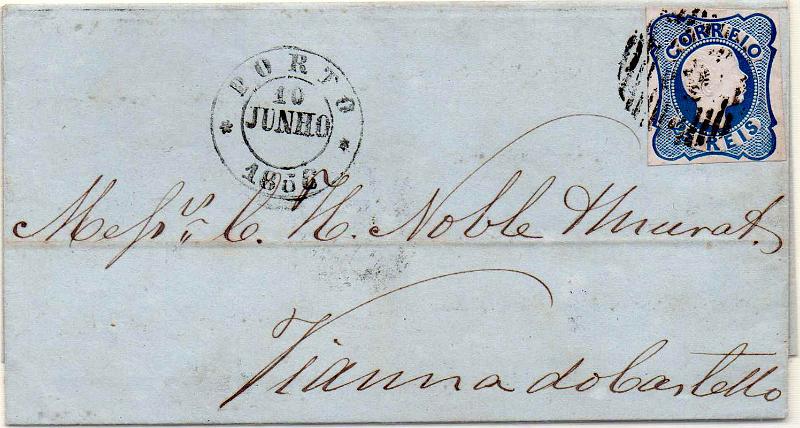 PORTO
10
JUNHO
185
CORREIO
REIS
Messrs C. H. Noble & Murat.
Vianna do Castello